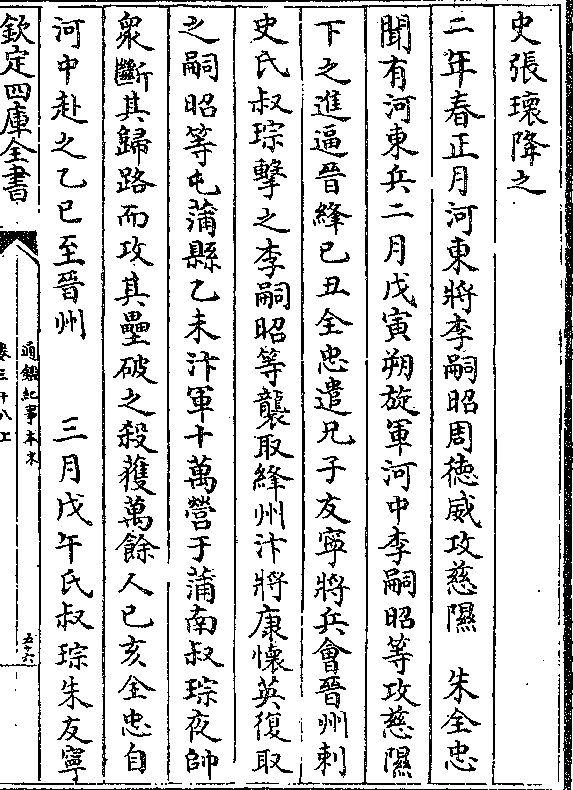 史張瓌降之
二年春正月河東將李嗣昭周德威攻慈隰　朱全忠
聞有河東兵二月戊寅朔旋軍河中李嗣昭等攻慈隰
下之進逼晉絳己丑全忠遣兄子友寧將兵會晉州刺
史氏叔琮擊之李嗣昭等襲取絳州汴將康懷英復取
之嗣昭等屯蒲縣乙未汴軍十萬營于蒲南叔琮夜帥
衆斷其歸路而攻其壘破之殺獲萬餘人己亥全忠自
河中赴之乙巳至晉州　三月戊午氏叔琮朱友寧
欽定四庫全書
通鑑紀事本末
卷三十八上
五十六